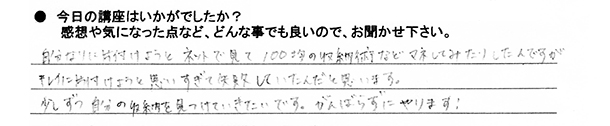 ● 今日の講座はいかがでしたか？
感想や気になった点など、どんな事でも良いので、お聞かせ下さい。
自分なりに片付けようと ネットで見て 100均の収納術など マネしてみたりしたんですが
キレイに片付けようと 思いすぎて失敗していたんだと思います。
少しずつ 自分の収納を見つけていきたいです。がんばらずにやります！